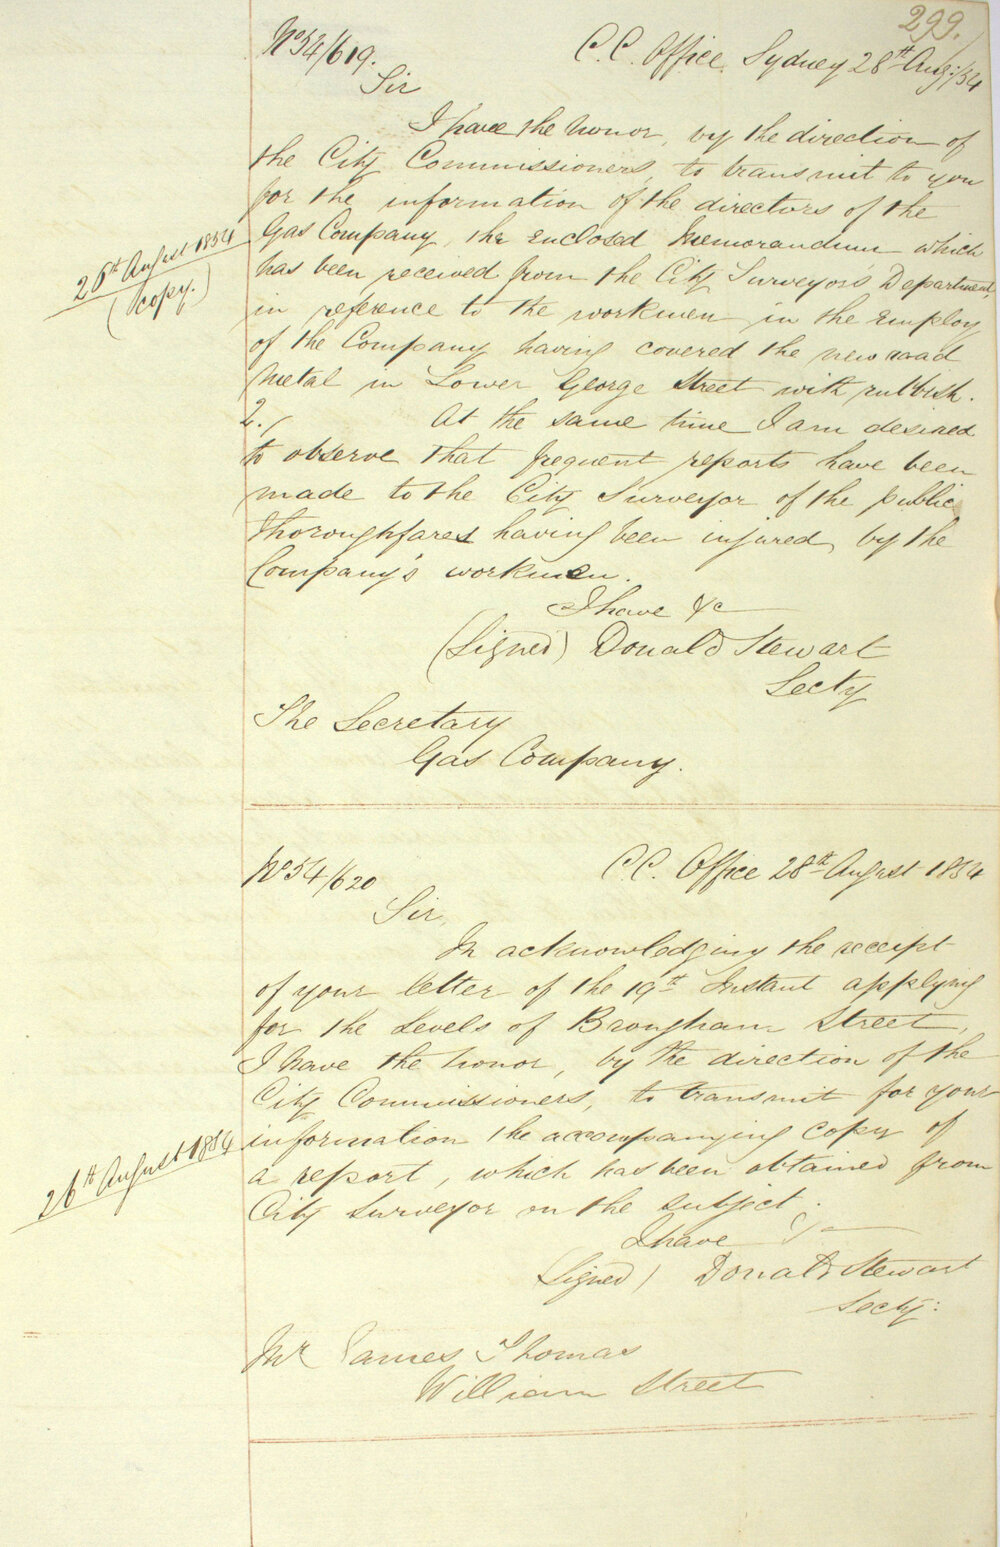 299.
No 54/619.
C.C. Office. Sydney 28th Aug:/54
Sir
I have the honor, by the direction of
the City Commissioners, to transmit to you
for the information of the directors of the
Gas Company, the enclosed Memorandum which
26th August 1854
(copy.)
has been received from the City Surveyor's Department,
in reference to the workmen in the employ
of the Company having covered the new road
metal in Lower George Street with rubbish.
2./ At the same time I am desired
to observe that frequent reports have been
made to the City Surveyor of the public
thoroughfares having been injured, by the
Company's workmen.
I have &c
(Signed) Donald Stewart
Secty
The Secretary
Gas Company.
No 54/620
C.C. Office 28th August 1854
Sir,
In acknowledging the receipt
of your letter of the 19th Instant applying
for the Levels of Brougham Street,
I have the honor, by the direction of the
City Commissioners, to transmit for your
26th August 1854
information the accompanying copy of
a report, which has been obtained from
City Surveyor on the subject.
I have &c
(Signed) Donald Stewart
Secty:
Mr James Thomas
William Street